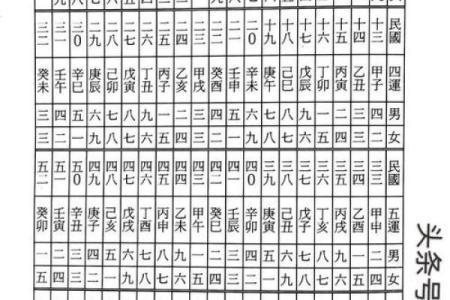 民國 十三 十四 十五 十六 十七 十八 十九 二〇 二一 二二 二三 二四 二五 二六 二七 二八 二九 三〇 三一 三二
四運 甲子 乙丑 丙寅 丁卯 戊辰 己巳 庚午 辛未 壬申 癸酉 甲戌 乙亥 丙子 丁丑 戊寅 己卯 庚辰 辛巳 壬午 癸未
男 四 三 二 一 九 八 七 六 五 四 三 二 一 九 八 七 六 五 四 三
女 二 三 四 五 六 七 八 九 一 二 三 四 五 六 七 八 九 一 二 三
民國 三三 三四 三五 三六 三七 三八 三九 四〇 四一 四二 四三 四四 四五 四六 四七 四八 四九 五〇 五一 五二
五運 甲申 乙酉 丙戌 丁亥 戊子 己丑 庚寅 辛卯 壬辰 癸巳 甲午 乙未 丙申 丁酉 戊戌 己亥 庚子 辛丑 壬寅 癸卯
男 二 一 九 八 七 六 五 四 三 二 一 九 八 七 六 五 四 三 二 一
女 四 五 六 七 八 九 一 二 三 四 五 六 七 八 九 一 二 三 四 五
头条号